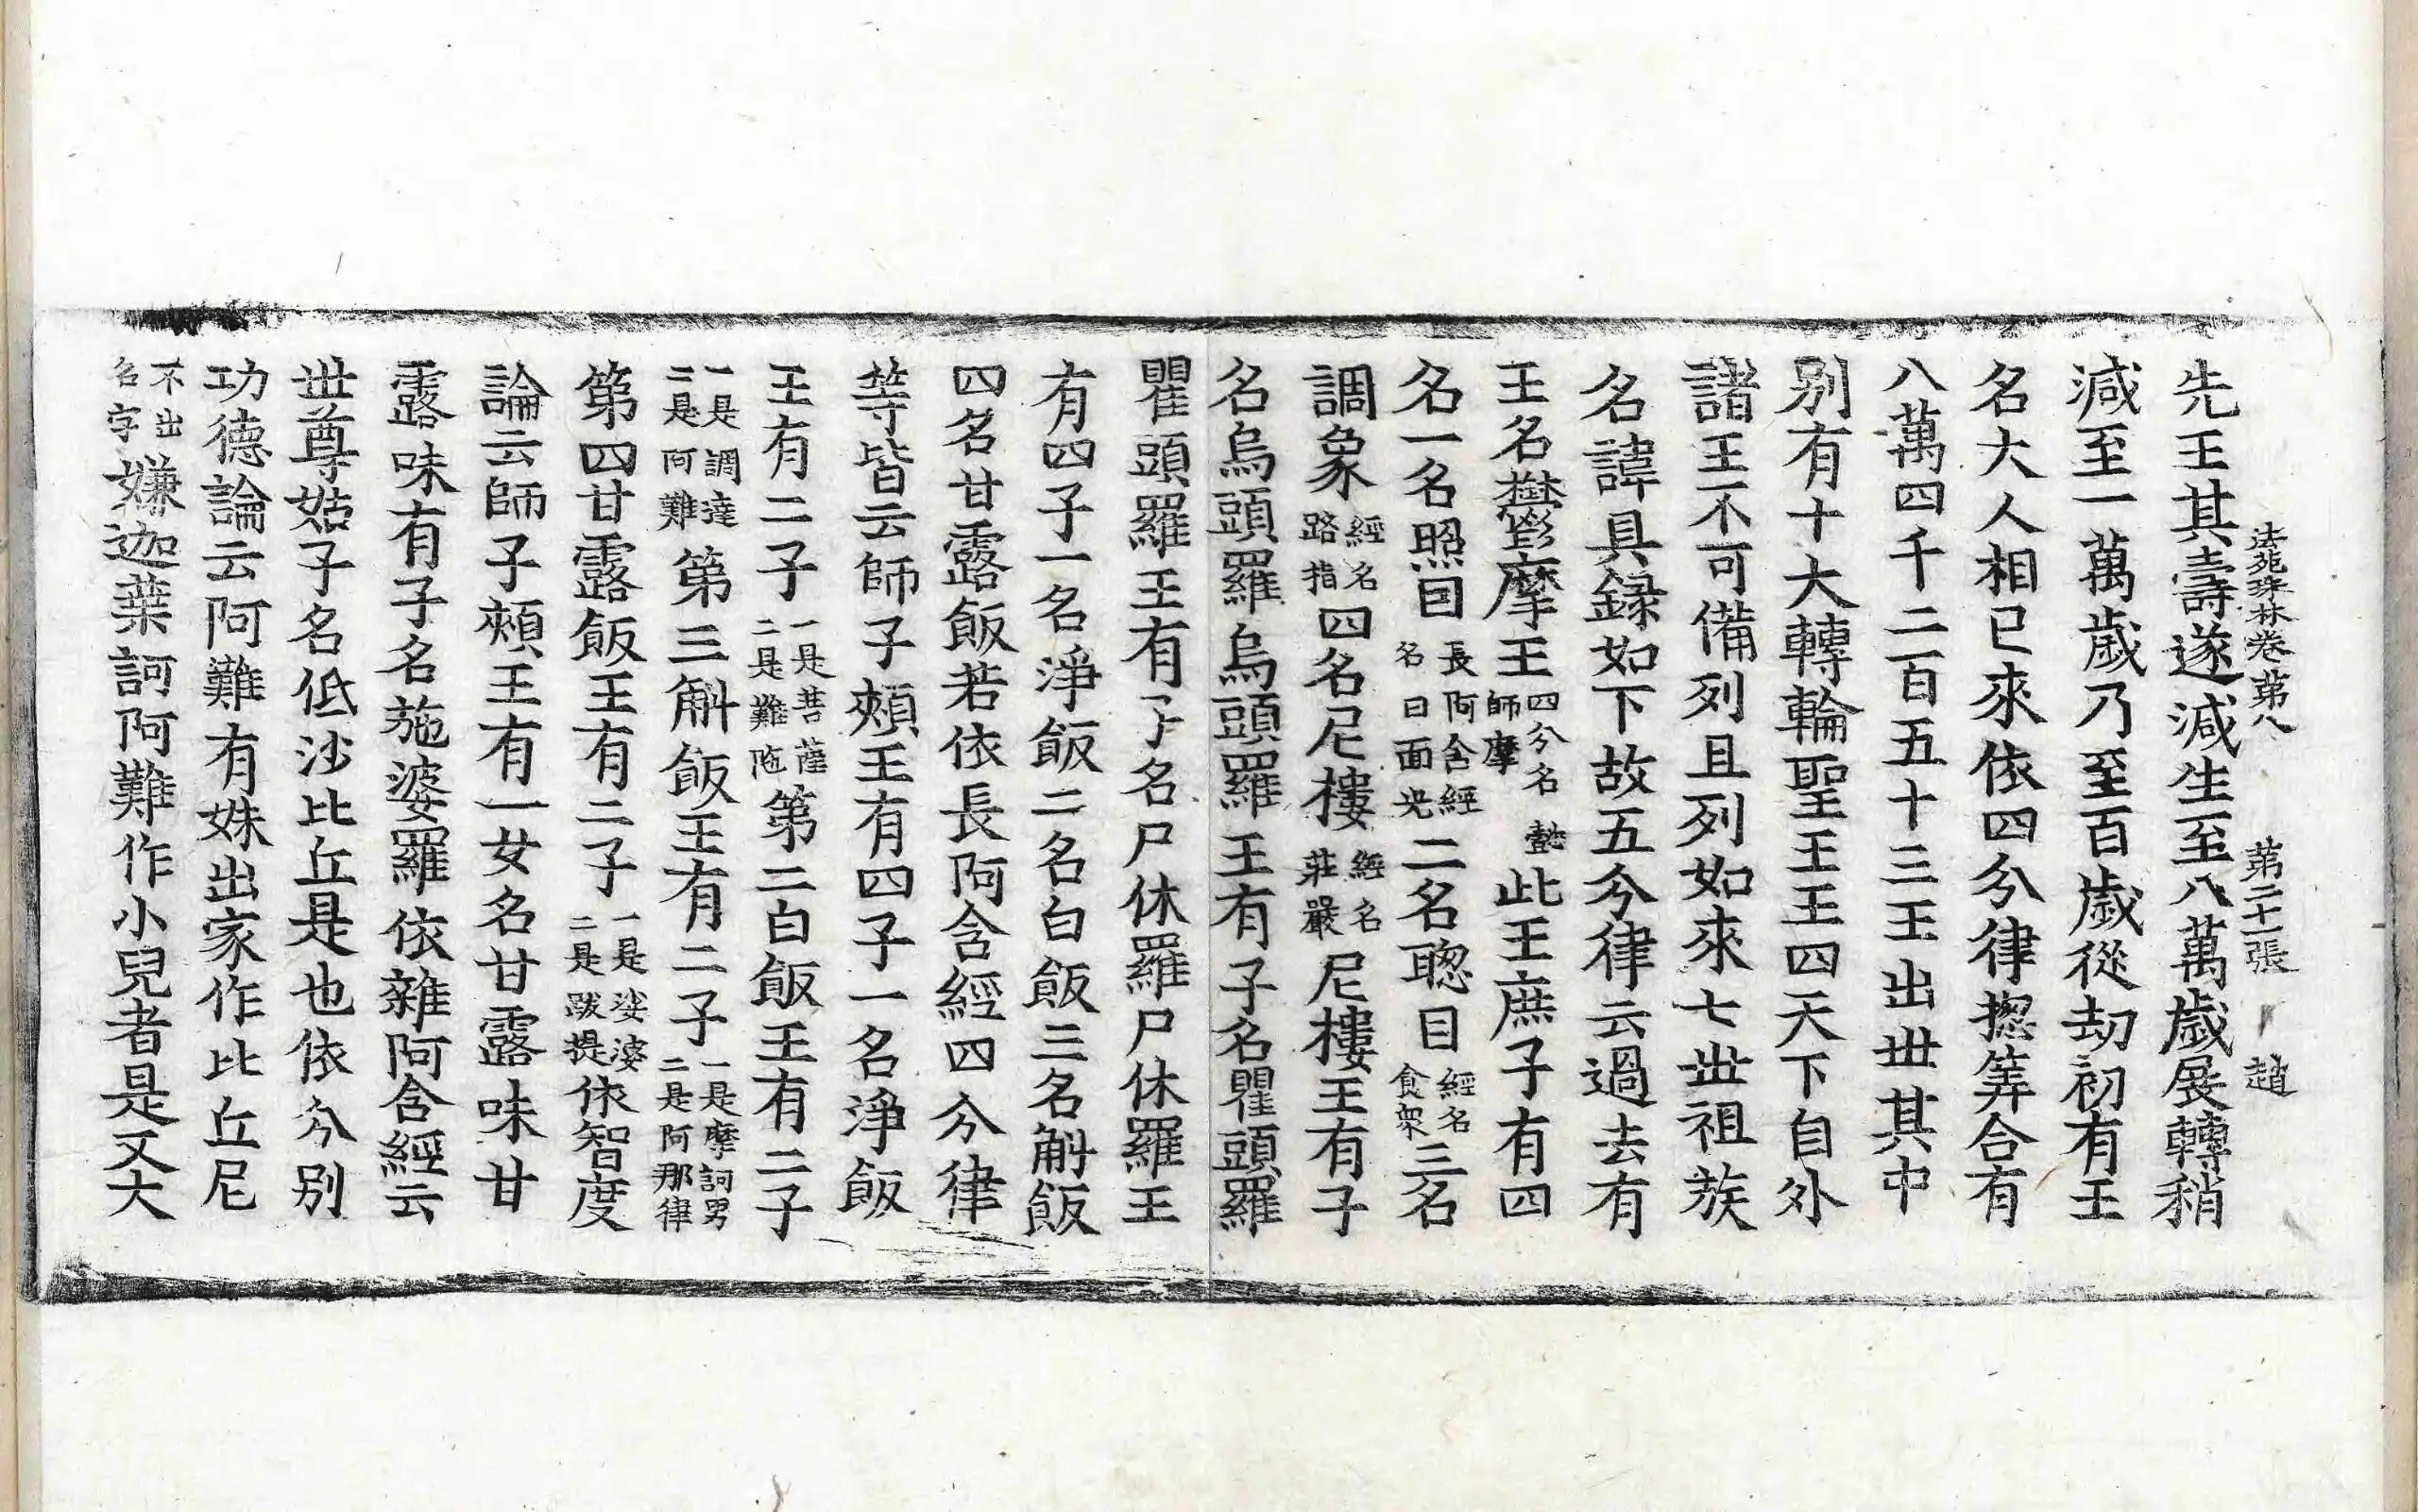 法苑珠林卷第八　第二十一張　趙
先王其壽遂減生至八萬歲展轉稍
減至一萬歲乃至百歲從劫初有王
名大人相已來依四分律揔筭合有
八萬四千二百五十三王出世其中
別有十大轉輪聖王王四天下自外
諸王不可備列且列如來七世祖族
名諱具録如下故五分律云過去有
王名欝摩王四分名懿師摩此王庶子有四
名一名照目長阿含經名曰面光二名聰目經名食衆三名
調象經名路指四名尼樓經名莊嚴尼樓王有子
名烏頭羅烏頭羅王有子名瞿頭羅
瞿頭羅王有子名尸休羅尸休羅王
有四子一名淨飯二名白飯三名斛飯
四名甘露飯若依長阿含經四分律
等皆云師子頰王有四子一名淨飯
王有二子一是菩薩二是難陁第二白飯王有二子
一是調達二是阿難第三斛飯王有二子一是摩訶男二是阿那律
第四甘露飯王有二子一是娑婆二是跋提依智度
論云師子頰王有一女名甘露味甘
露味有子名施婆羅依雜阿含經云
世尊姑子名低沙比丘是也依分別
功德論云阿難有妹出家作比丘尼
不出名字嫌迦葉訶阿難作小兒者是又大